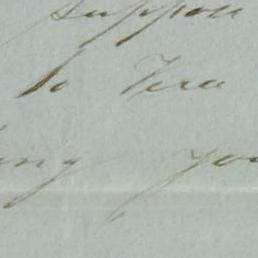 suppose
to Vera
ing you